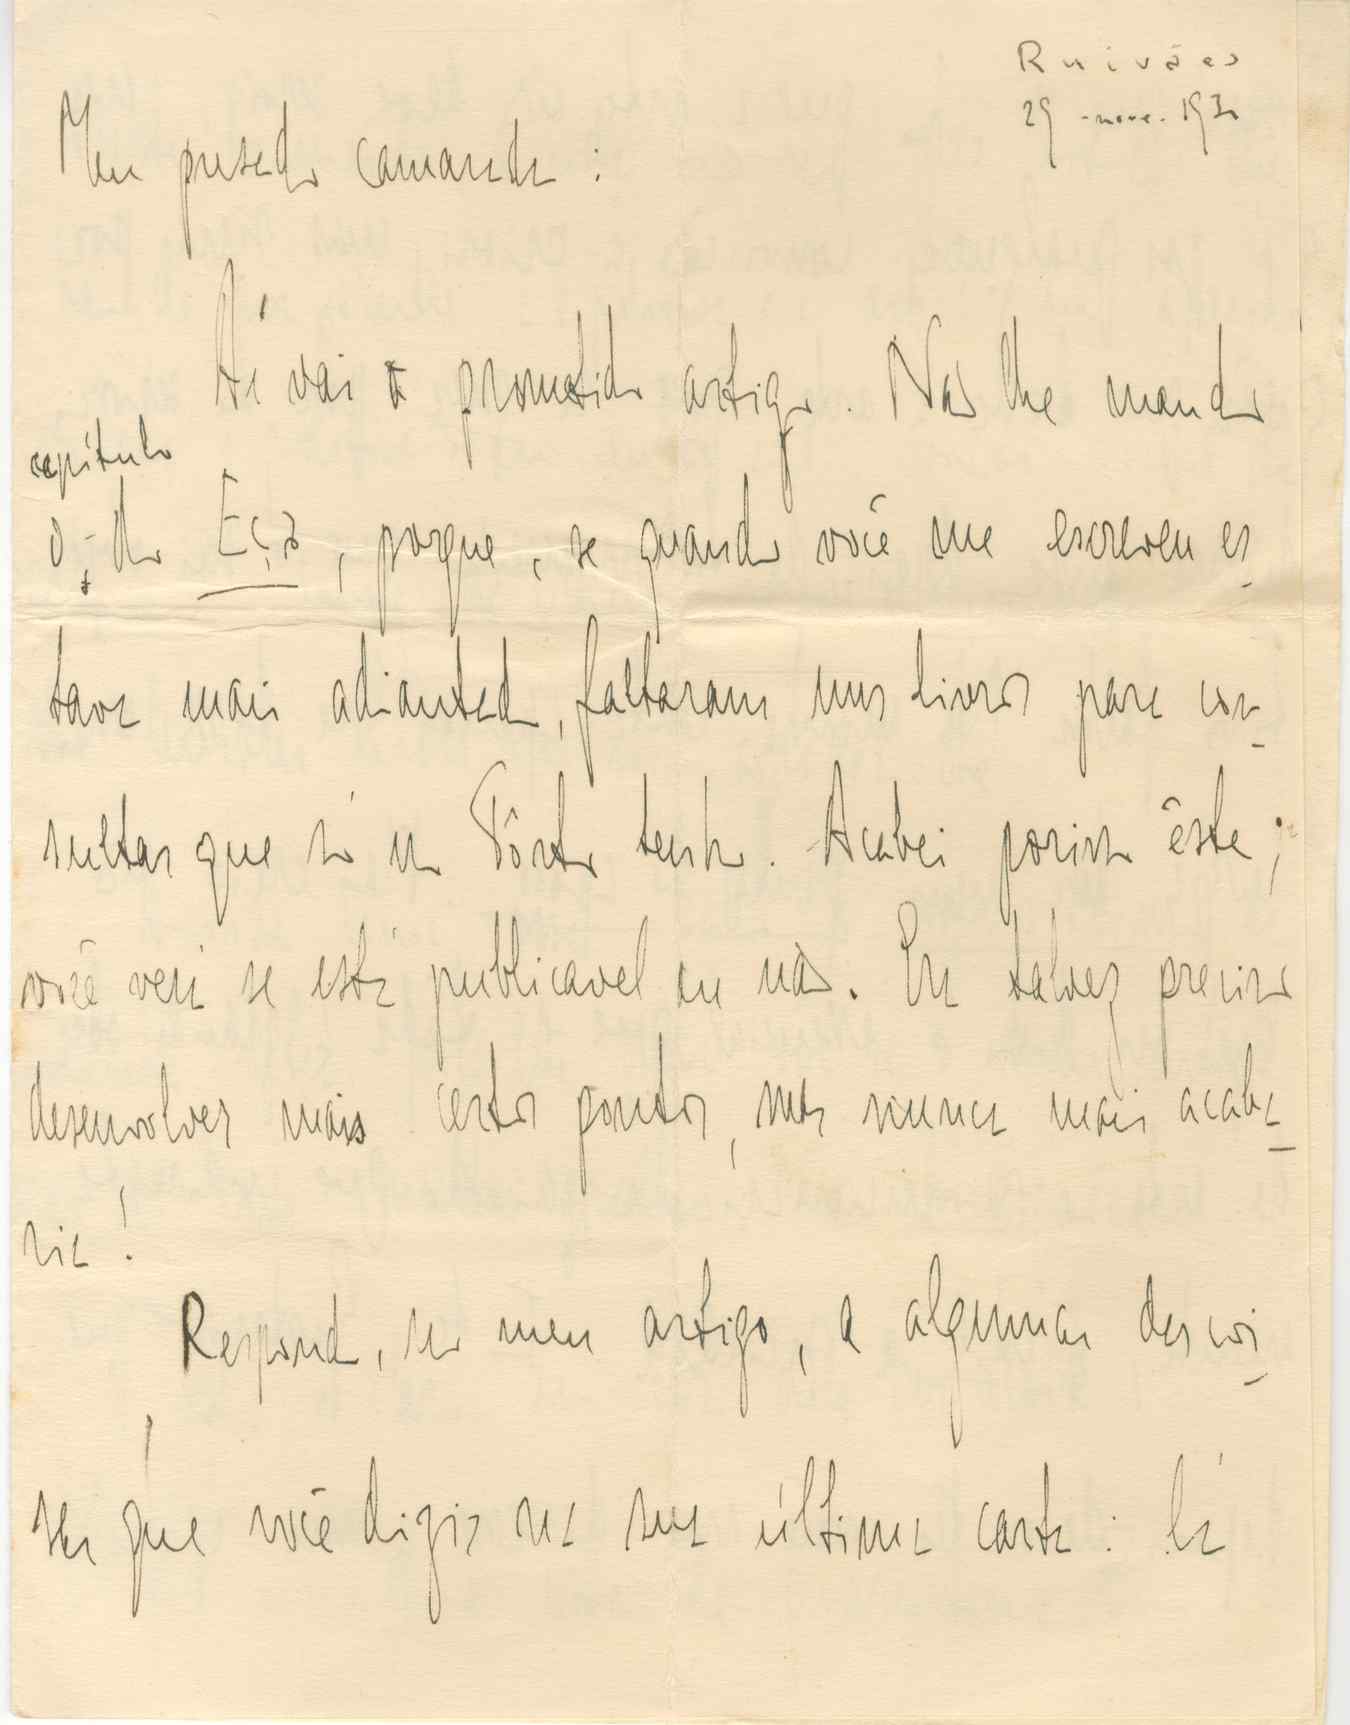 Ruivães
29 - nov. - 1930
Meu presado camarada:
Aí vai o prometido artigo. Não lhe mando
o capítulo do Eça, porque, se quando você me escreveu es-
tava mais adiantado, faltaram uns livros para con-
sultar que só no Pôrto tenho. Acabei porisso êste;
você verá se está publicavel ou não. Era talvez preciso
desenvolver mais certos pontos, mas nunca mais acaba-
ria!
Respondo, no meu artigo, a algumas das coi-
sas que você dizia na sua última carta: lá